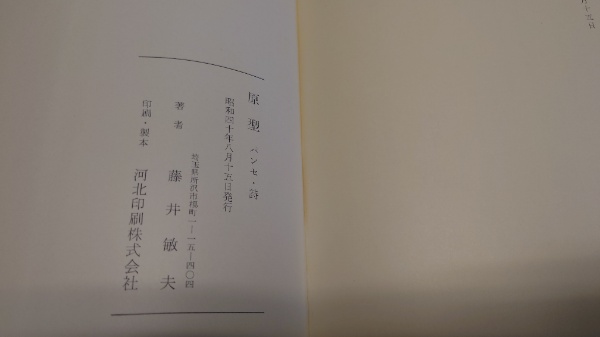 原型 パンセ・詩
昭和四十年八月十五日発行
埼玉県所沢市 町一−一五−四〇四
著者 藤井敏夫
印刷・製本 河北印刷株式会社